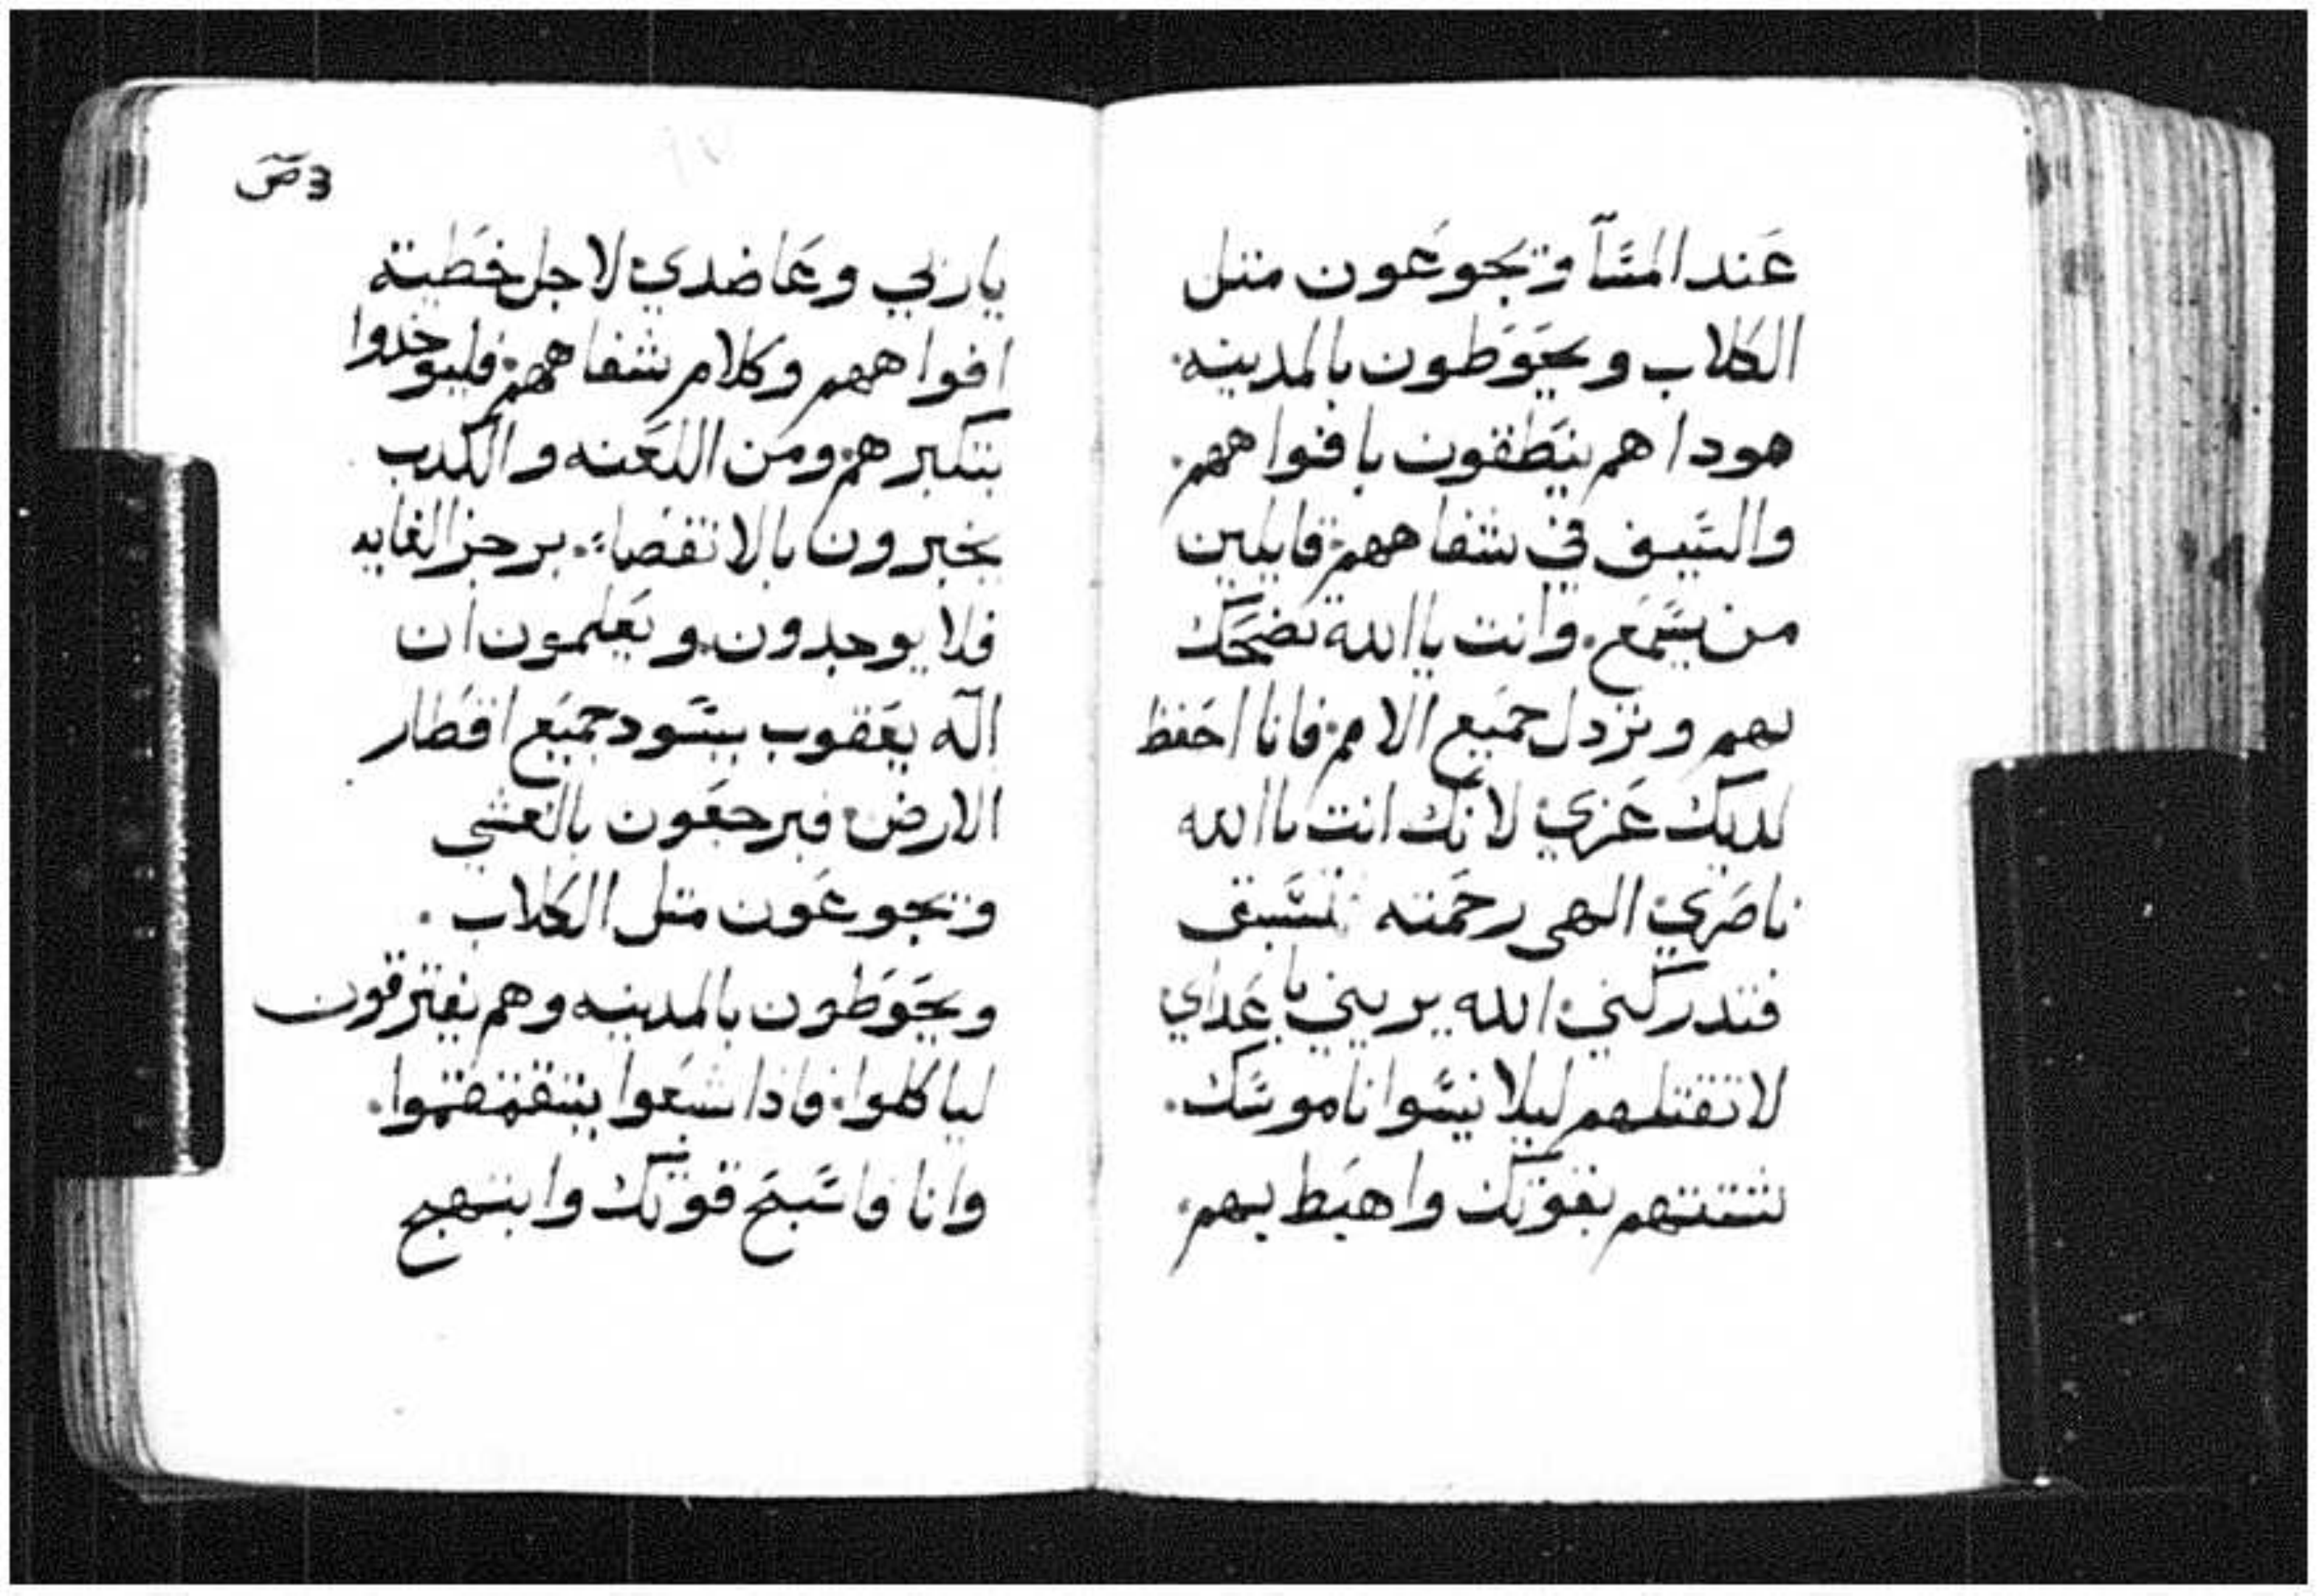 عند المسآ ويجوعون متل
الكلاب ويحوطون بالمدينه.
هودا هم ينطقون بافواههم.
والسيف في شفاههم. قايلين
من يسمع. وانت ياالله تضحك
بهم وتزدل جميع الامم. فانا احفظ
لديك عزي لانك انت ياالله
ناصري الهي رحمته تسبق
فتدركني الله يريني باعداي
لا تقتلهم ليلا ينسوا ناموسك.
شتتهم بقوتك واهبط بهم.
يا ربي وعاضدي لاجل خطية
افواههم وكلام شفاههم. فليوخدوا
بتكبرهم. ومن اللعنه والكدب
يخبرون بالانقضاء. برجز الغايه
فلا يوجدون. ويعلمون ان
اله يعقوب يسود جميع اقطار
الارض. فيرجعون بالعشي
ويجوعون متل الكلاب.
ويحوطون بالمدينه وهم يفترقون
لياكلوا. فاذا شبعوا يتقمقموا.
وانا فاسبح قوتك وابتهج